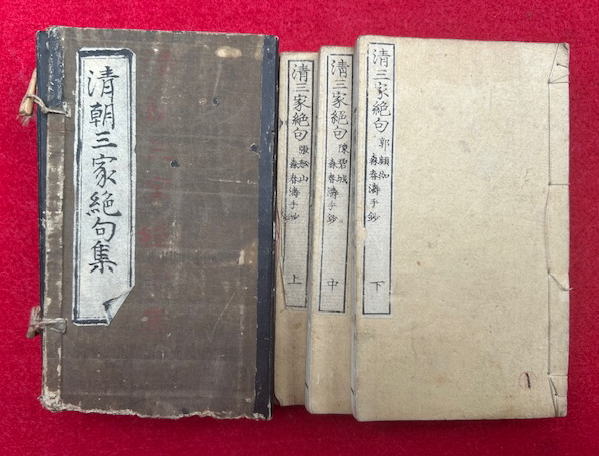 清朝三家絶句集
清三家絶句
張船山
森春濤手鈔
上
清三家絶句
陳碧城
森春濤手鈔
中
清三家絶句
郭頻伽
森春濤手鈔
下